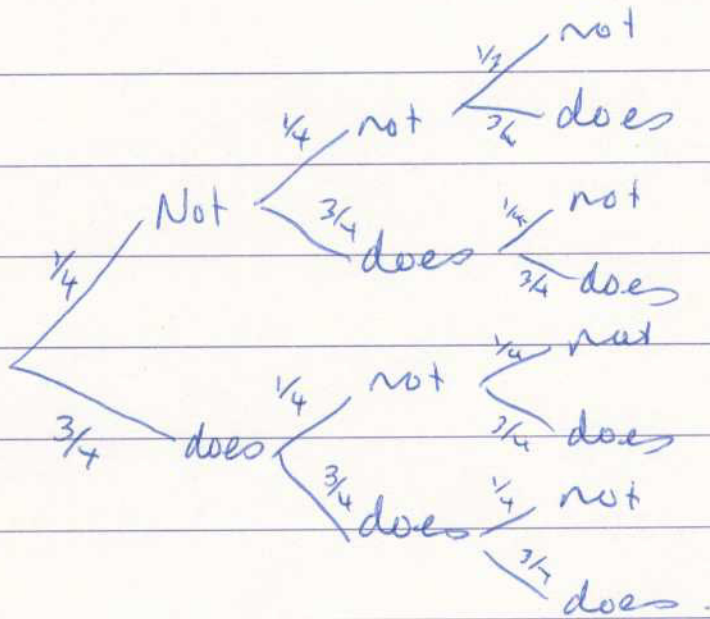 not
1/4 not 1/4 3/4 does
Not 3/4 does 1/4 not
1/4 3/4 does
3/4 does 1/4 not 1/4 not
3/4 does
3/4 does 1/4 not
3/4 does.